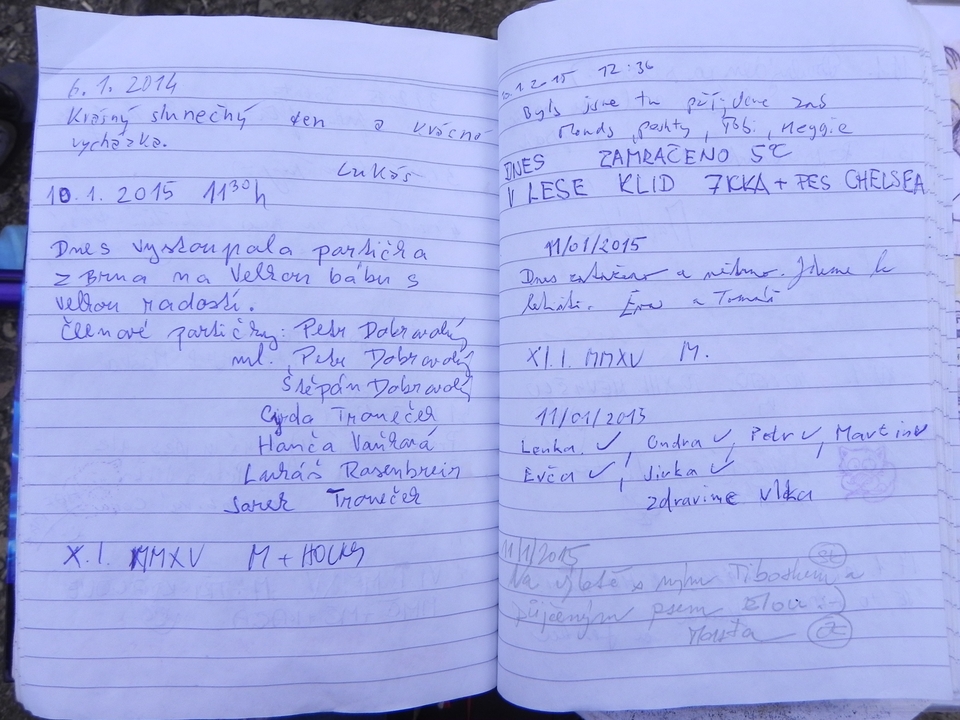 6.1.2014
Krásný slunečný den a krásná
vycházka.
Lukáš
10.1.2015 11³⁰h
Dnes vystoupala partička
z Brna na Velkou bábu s
velkou radostí.
Členové partičky: Petr Dobrovolný
ml., Petr Dobrovolný
Štěpán Dobrovolný
Cyda Troneček
Hanča Vaňková
Lukáš Rosenbreier
Jarek Troneček
X.I. MMXV M + HOLKY
10.1.2015 12:36
Byli jsme tu půjdeme zas
Mends, pashty, Tobi, Meggie
DNES ZAMRAČENO 5°C
V LESE KLID 7KKA + PES CHELSEA
11/01/2015
Dnes zataženo a větrno. Jdeme k
Eva a Tomáš
XI.I. MMXV M.
11/01/2015
Lenka ✓, Ondra ✓, Petr ✓, Martin ✓
Evča ✓, Jirka ✓
zdravíme vlka
11/1/2015
Na výletě s mým Tiboshem a
půjčeným psem :-)